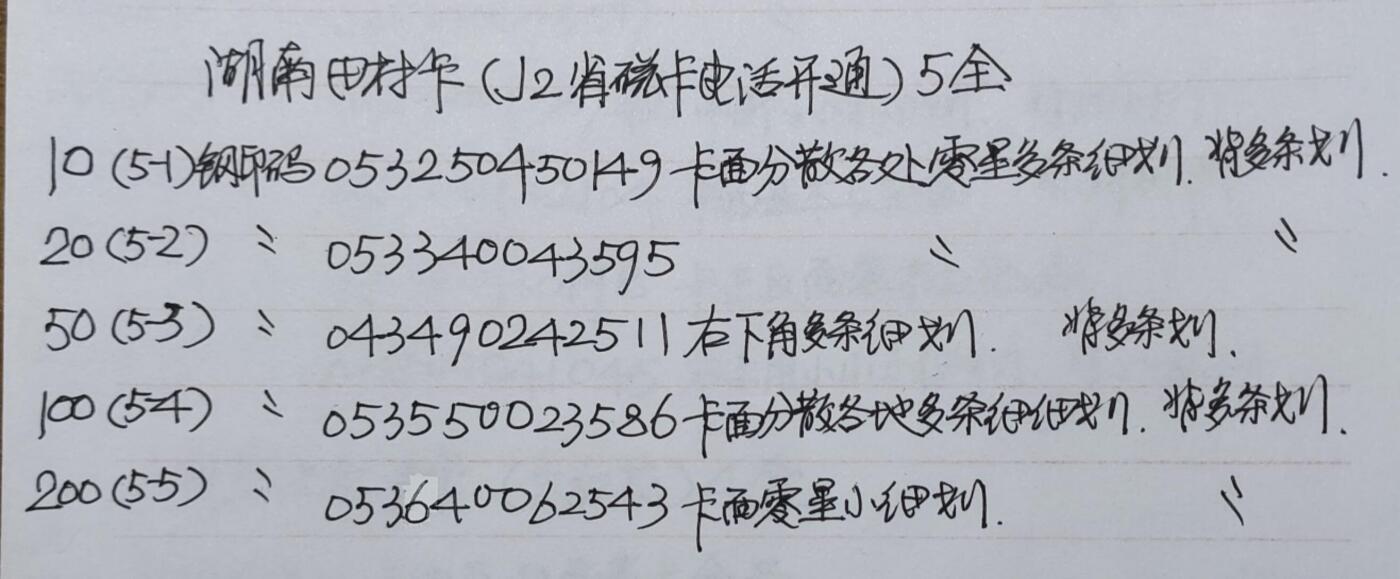 湖南田村卡(J2省磁卡电话开通)5全
10(5-1)钢印码053250450149卡面分散各处零星多条细划.背多条划.
20(5-2) 〃 053340043595 〃 〃
50(5-3) 〃 043490242511右下角多条细划. 背多条划.
100(5-4) 〃 053550023586卡面分散各地多条细细划.背多条划.
200(5-5) 〃 053640062543卡面零星小细划. 〃